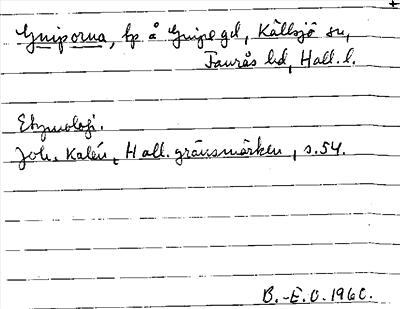 Gniporna, bp å Gnipe gd, Källsjö sn,
Faurås hd, Hall. l.
Etymologi.
Joh. Kalén, Hall. gränsmärken, s. 54.
B.-E. O. 1960.